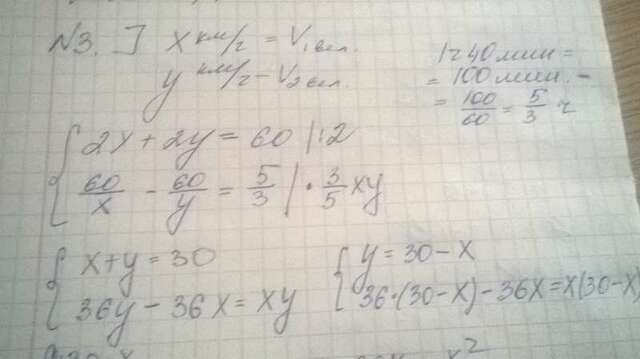 №3. ] x км/ч = V₁ вел.
y км/ч - V₂ вел.
1ч 40 мин =
= 100 мин. -
= 100/60 = 5/3 ч
{ 2x + 2y = 60 | :2
60/x - 60/y = 5/3 | · 3/5 xy
{ x + y = 30
36y - 36x = xy
{ y = 30 - x
36·(30-x) - 36x = x(30-x)